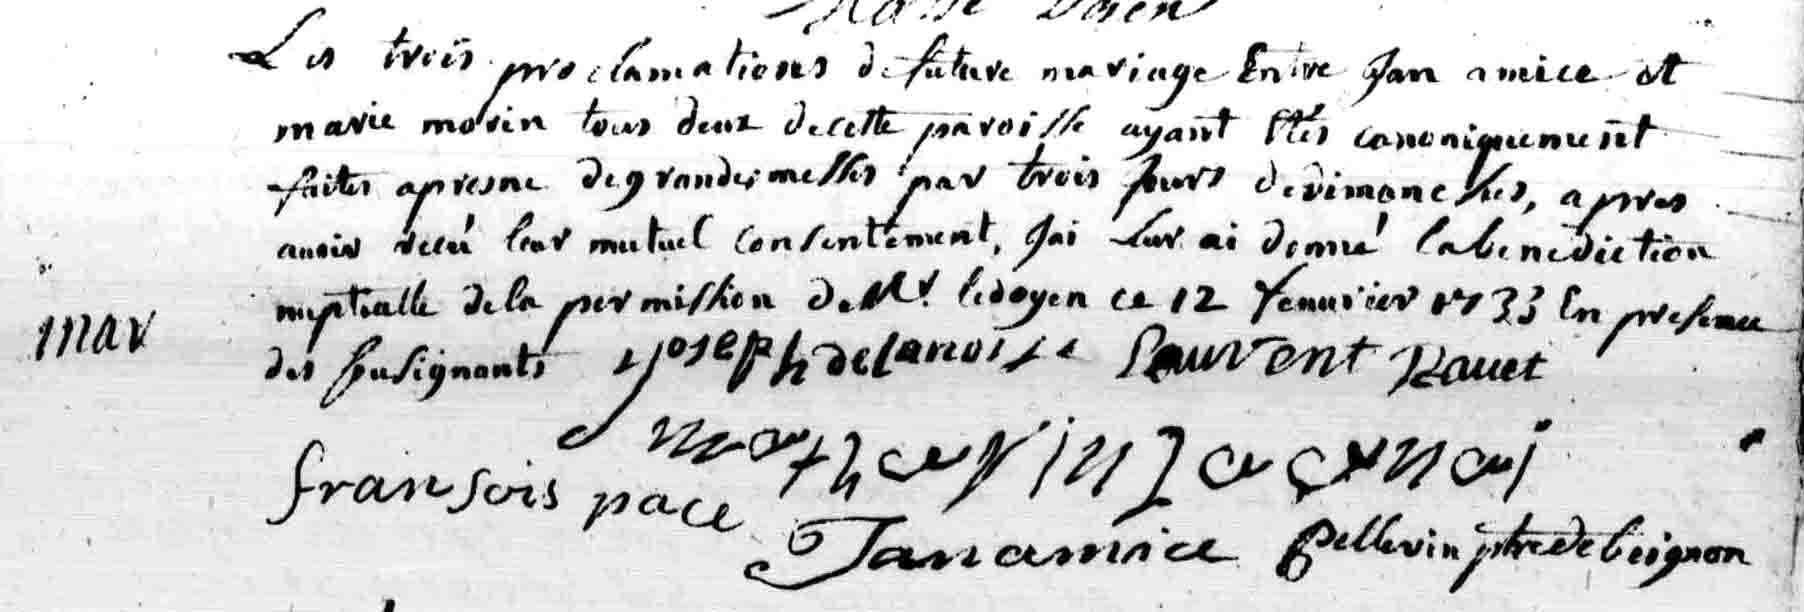 Les trois proclamations de future mariage Entre Jan amice et
marie morin tous deux de cette paroisse ayant Etés canoniquement
faites apresne de grandes messes par trois Jours de dimanches, apres
auoir recü leur mutuel consentement, Jai Leur ai donné la benediction
nuptialle de la permission de Mr. ledoyen ce 12 feuurier 1733 En presence
mar
des susignants Joseph delanoise Lauvent Rauet
mathevrin
fransois pace
Jan amice Pellerin ptre de beignon